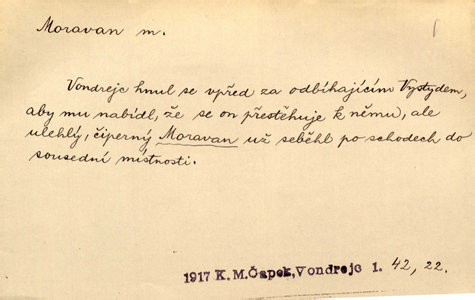 Moravan m.
Vondrejc hnul se vpřed za odbíhajícím Vystydem,
aby mu nabídl, že se on přestěhuje k němu, ale
ulehlý, čiperný Moravan už seběhl po schodech do
sousední místnosti.
1917 K.M.Čapek,Vondrejc 1. 42, 22.